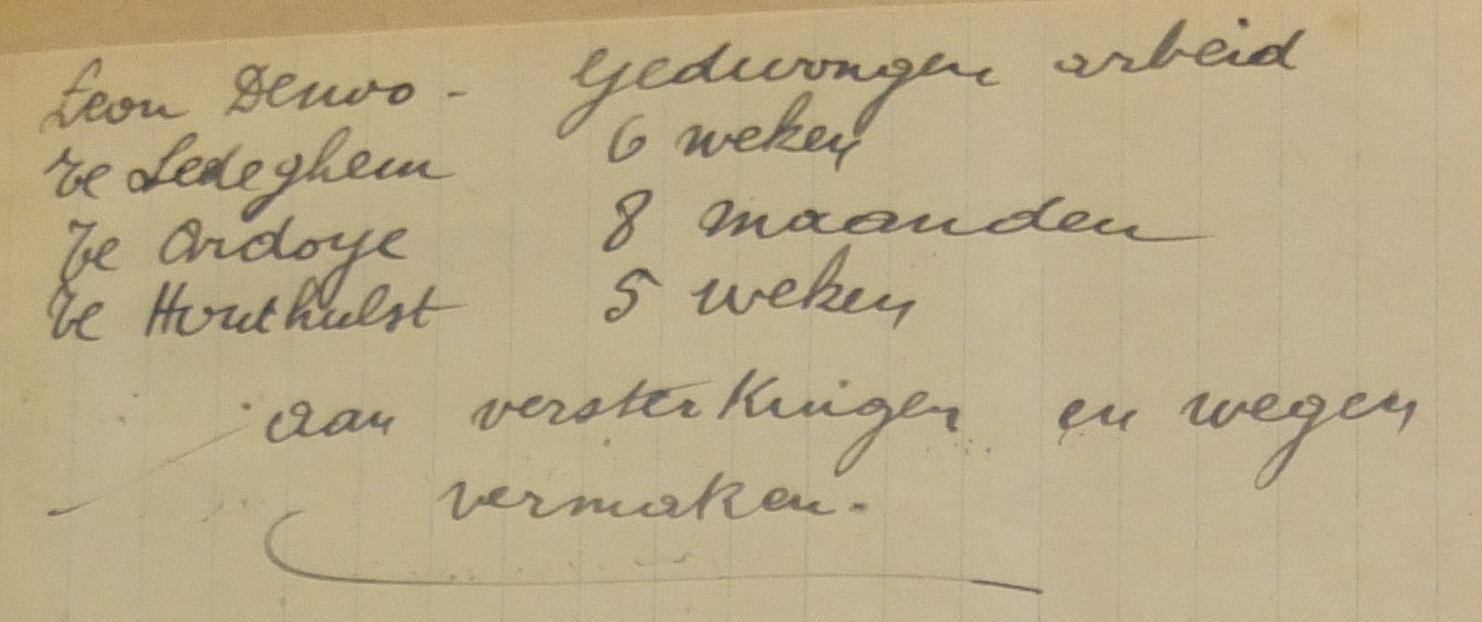 Leon Denoo - Gedwongen arbeid
te Ledeghem 6 weken
te Ardoye 8 maanden
te Houthulst 5 weken
aan versterkingen en wegen
vermaken.